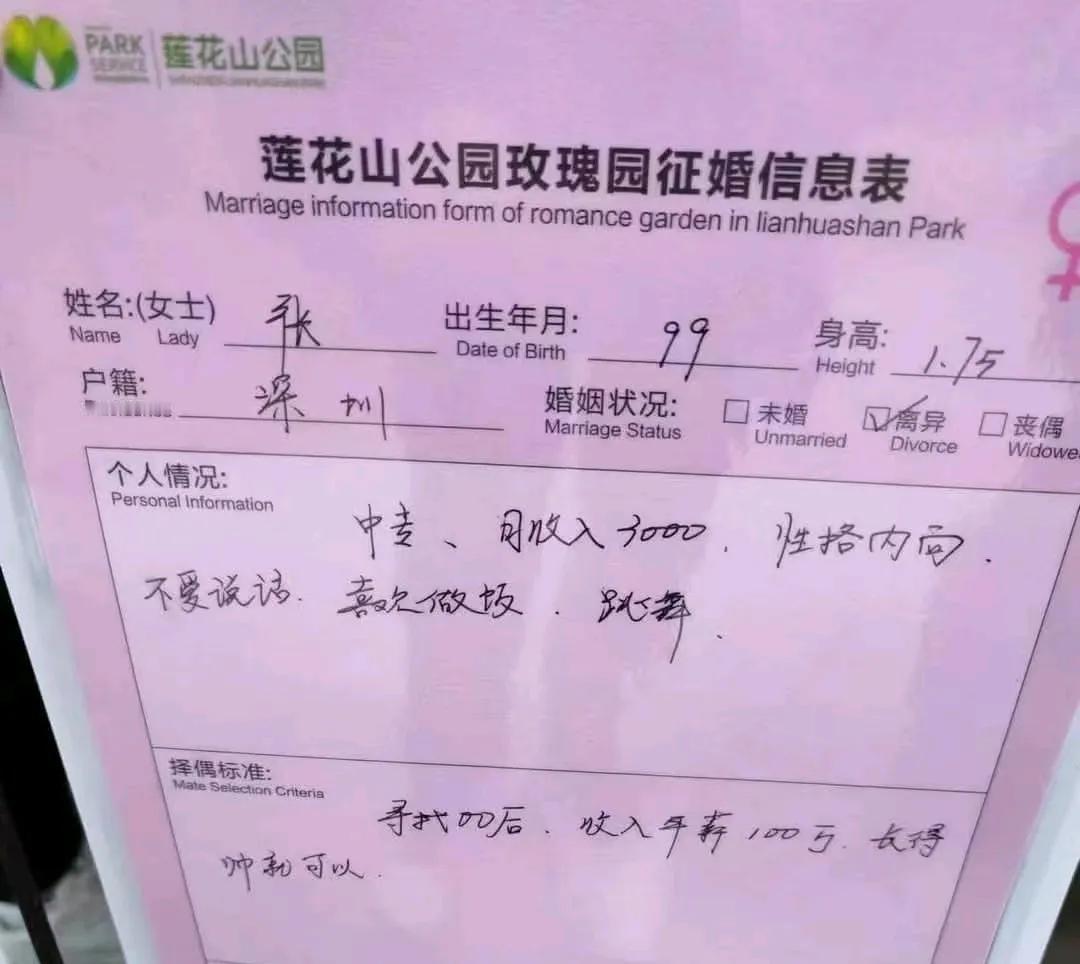 PARK SERVICE 莲花山公园
莲花山公园玫瑰园征婚信息表
Marriage information form of romance garden in lianhuashan Park
姓名:(女士) 张 出生年月: 99 身高: 1.75
Name Lady Date of Birth Height
户籍: 深圳 婚姻状况: 未婚 离异 丧偶
Marriage Status Unmarried Divorce Widowe
个人情况:
Personal Information
中专、月收入3000. 性格内向.
不爱说话. 喜欢做饭. 跳舞.
择偶标准:
Mate Selection Criteria
寻找00后. 收入年薪100万. 长得
帅就可以.